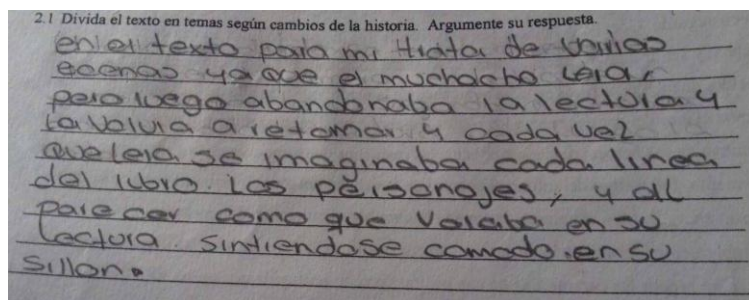 2.1 Divida el texto en temas según cambios de la historia. Argumente su respuesta.
en el texto para mi trata de varias
ecenas ya que el muchacho leia,
pero luego abandonaba la lectura y
la volvia a retomar y cada vez
que leia se imaginaba cada linea
del libro. Los personajes, y al
parecer como que volaba en su
lectura. Sintiendose comodo.en su
sillon.